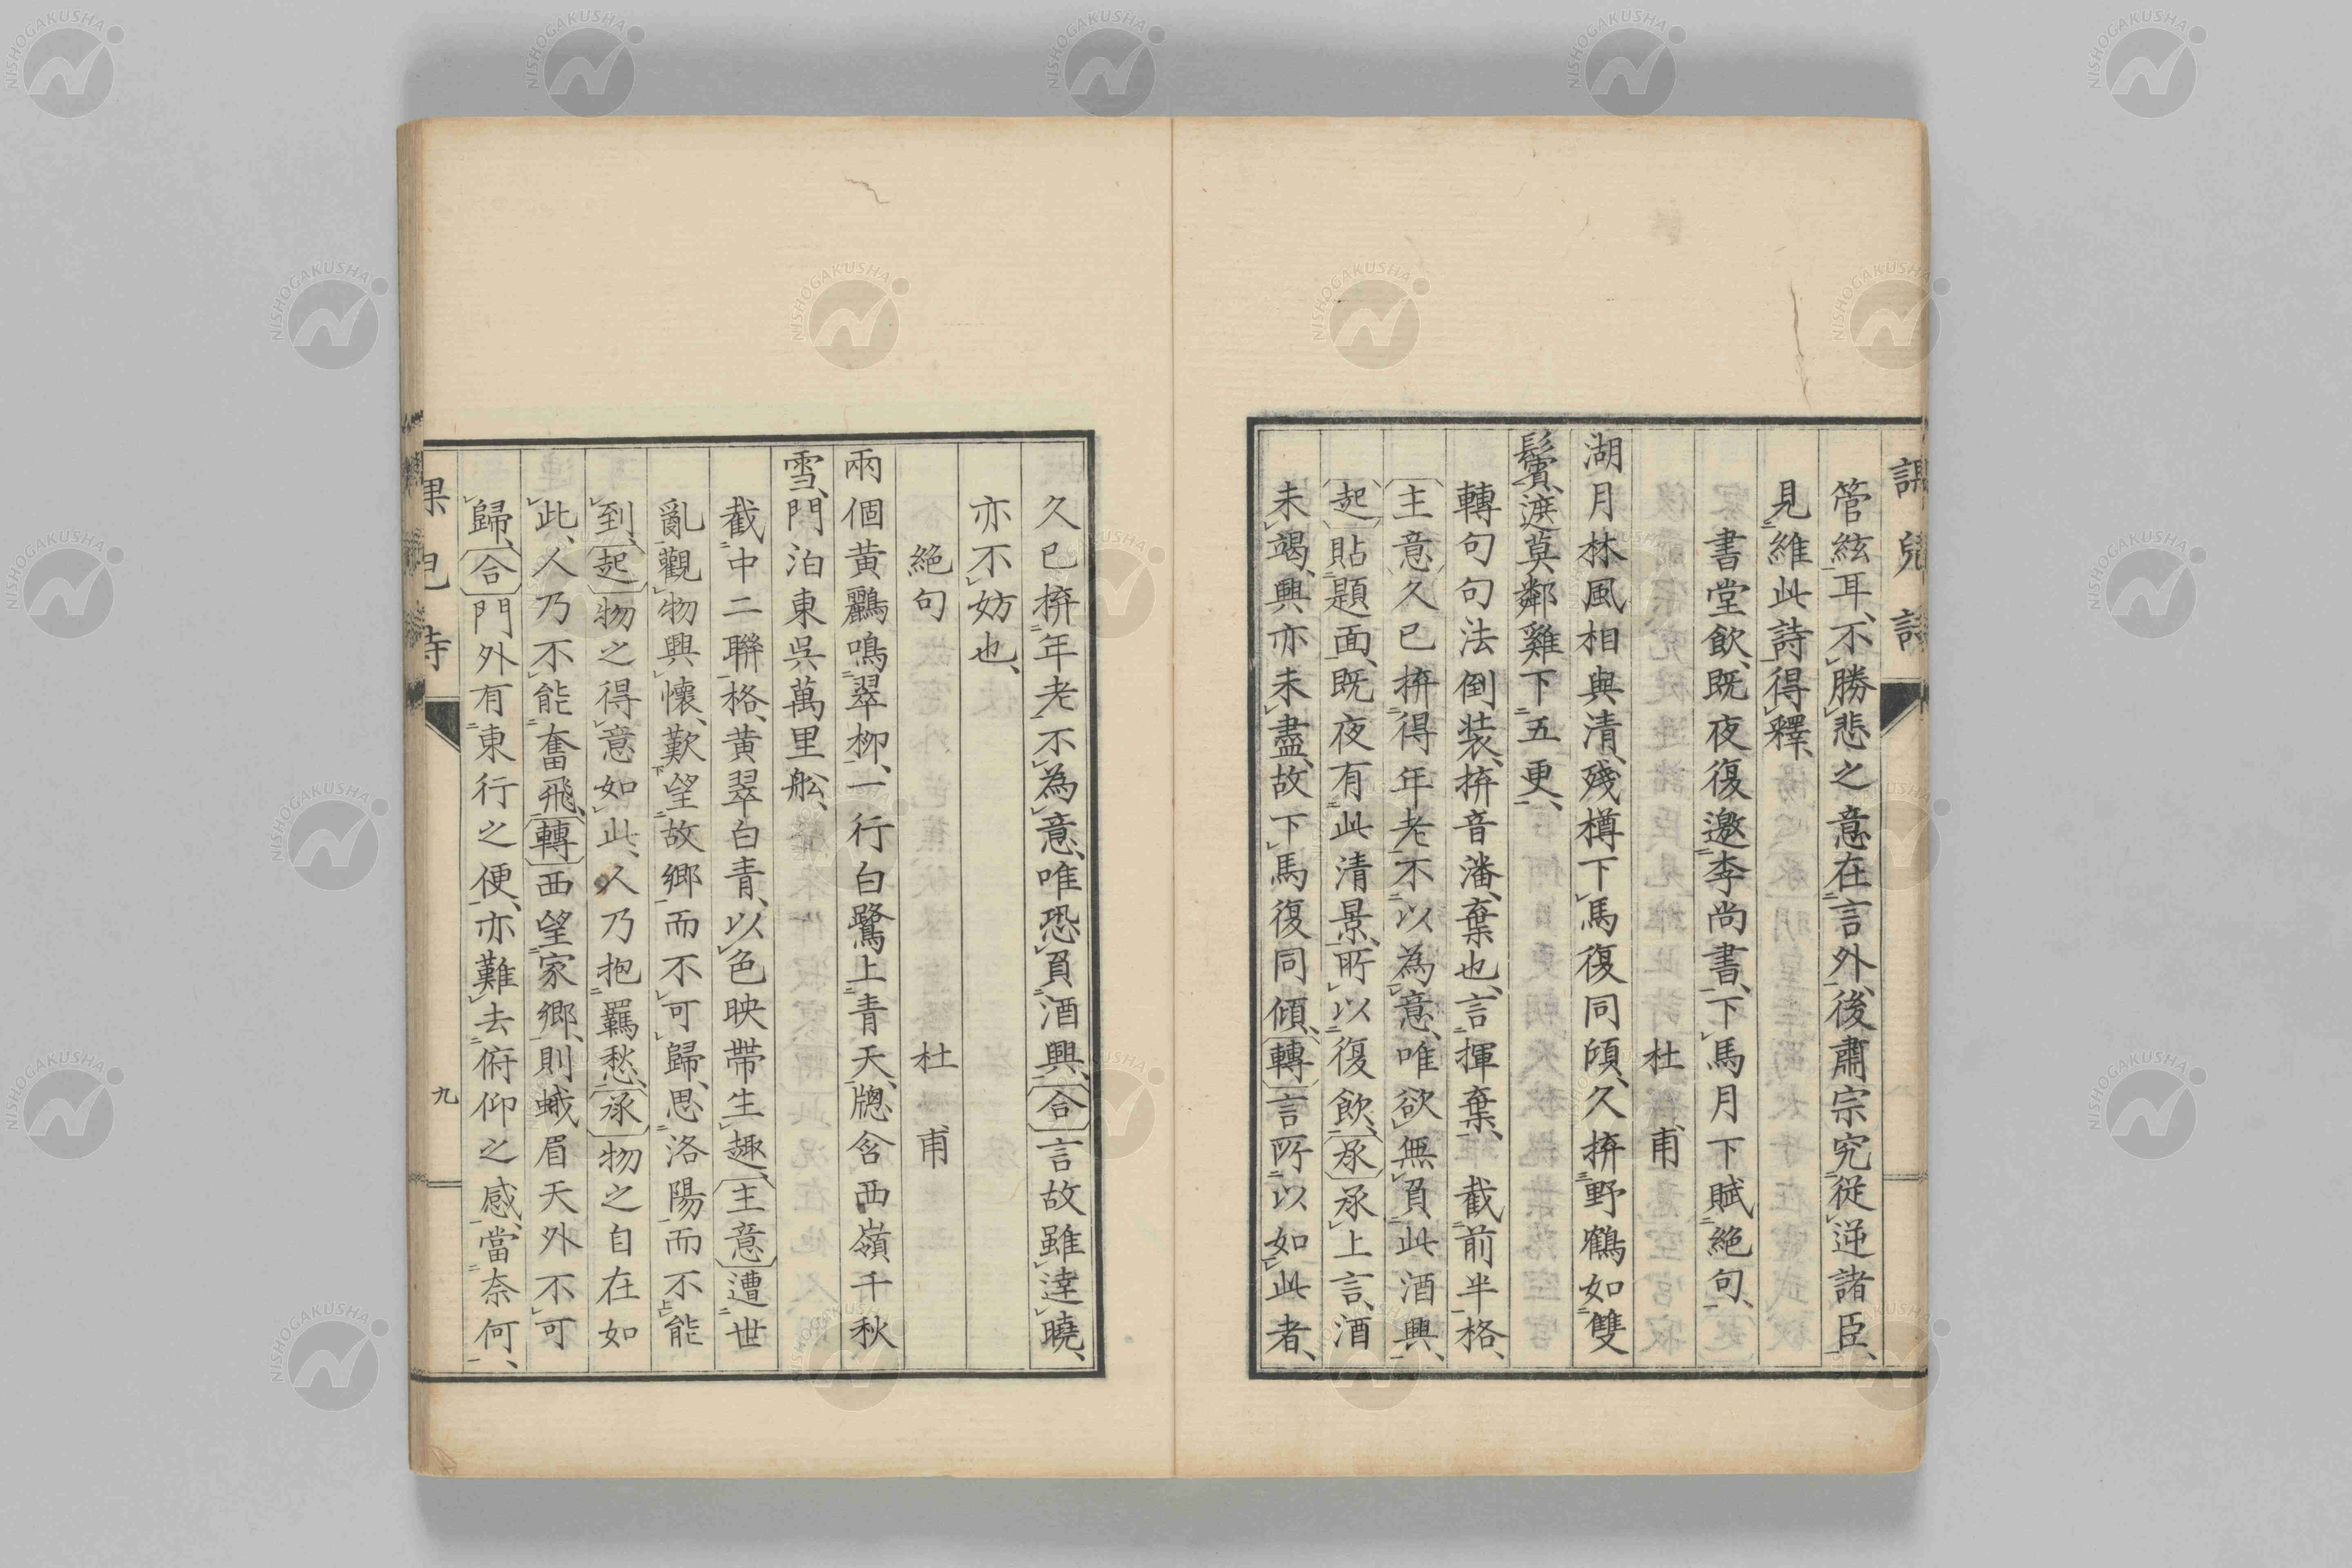 課兒詩
管絃耳、不勝悲之意在言外、後肅宗究從逆諸臣、
見維此詩得釋、
書堂飲、既夜復邀李尚書、下馬月下賦絕句、
杜甫
湖月林風相與清、殘樽下馬復同傾、久拚野鶴如雙
鬢、遮莫鄰雞下五更、
轉句句法倒裝、拚音潘、棄也、言揮棄、截前半格、
主意久已拚得年老不以為意、唯欲無負此酒興、
起貼題面、既夜有此清景、所以復飲、承承上言、酒
未竭、興亦未盡、故下馬復同傾、轉言所以如此者、
久已拚年老不為意、唯恐負酒興、合言故雖達曉、
亦不妨也、
絕句 杜甫
兩個黃鸝鳴翠柳、一行白鷺上青天、牕含西嶺千秋
雪、門泊東吳萬里舩、
截中二聯格、黃翠白青、以色映帶生趣、主意遭世
亂觀物興懷、歎望故鄉而不可歸、思洛陽而不能
到、起物之得意如此、人乃抱羈愁、承物之自在如
此、人乃不能奮飛、轉西望家鄉、則蛾眉天外不可
歸、合門外有東行之便、亦難去俯仰之感、當奈何、
九